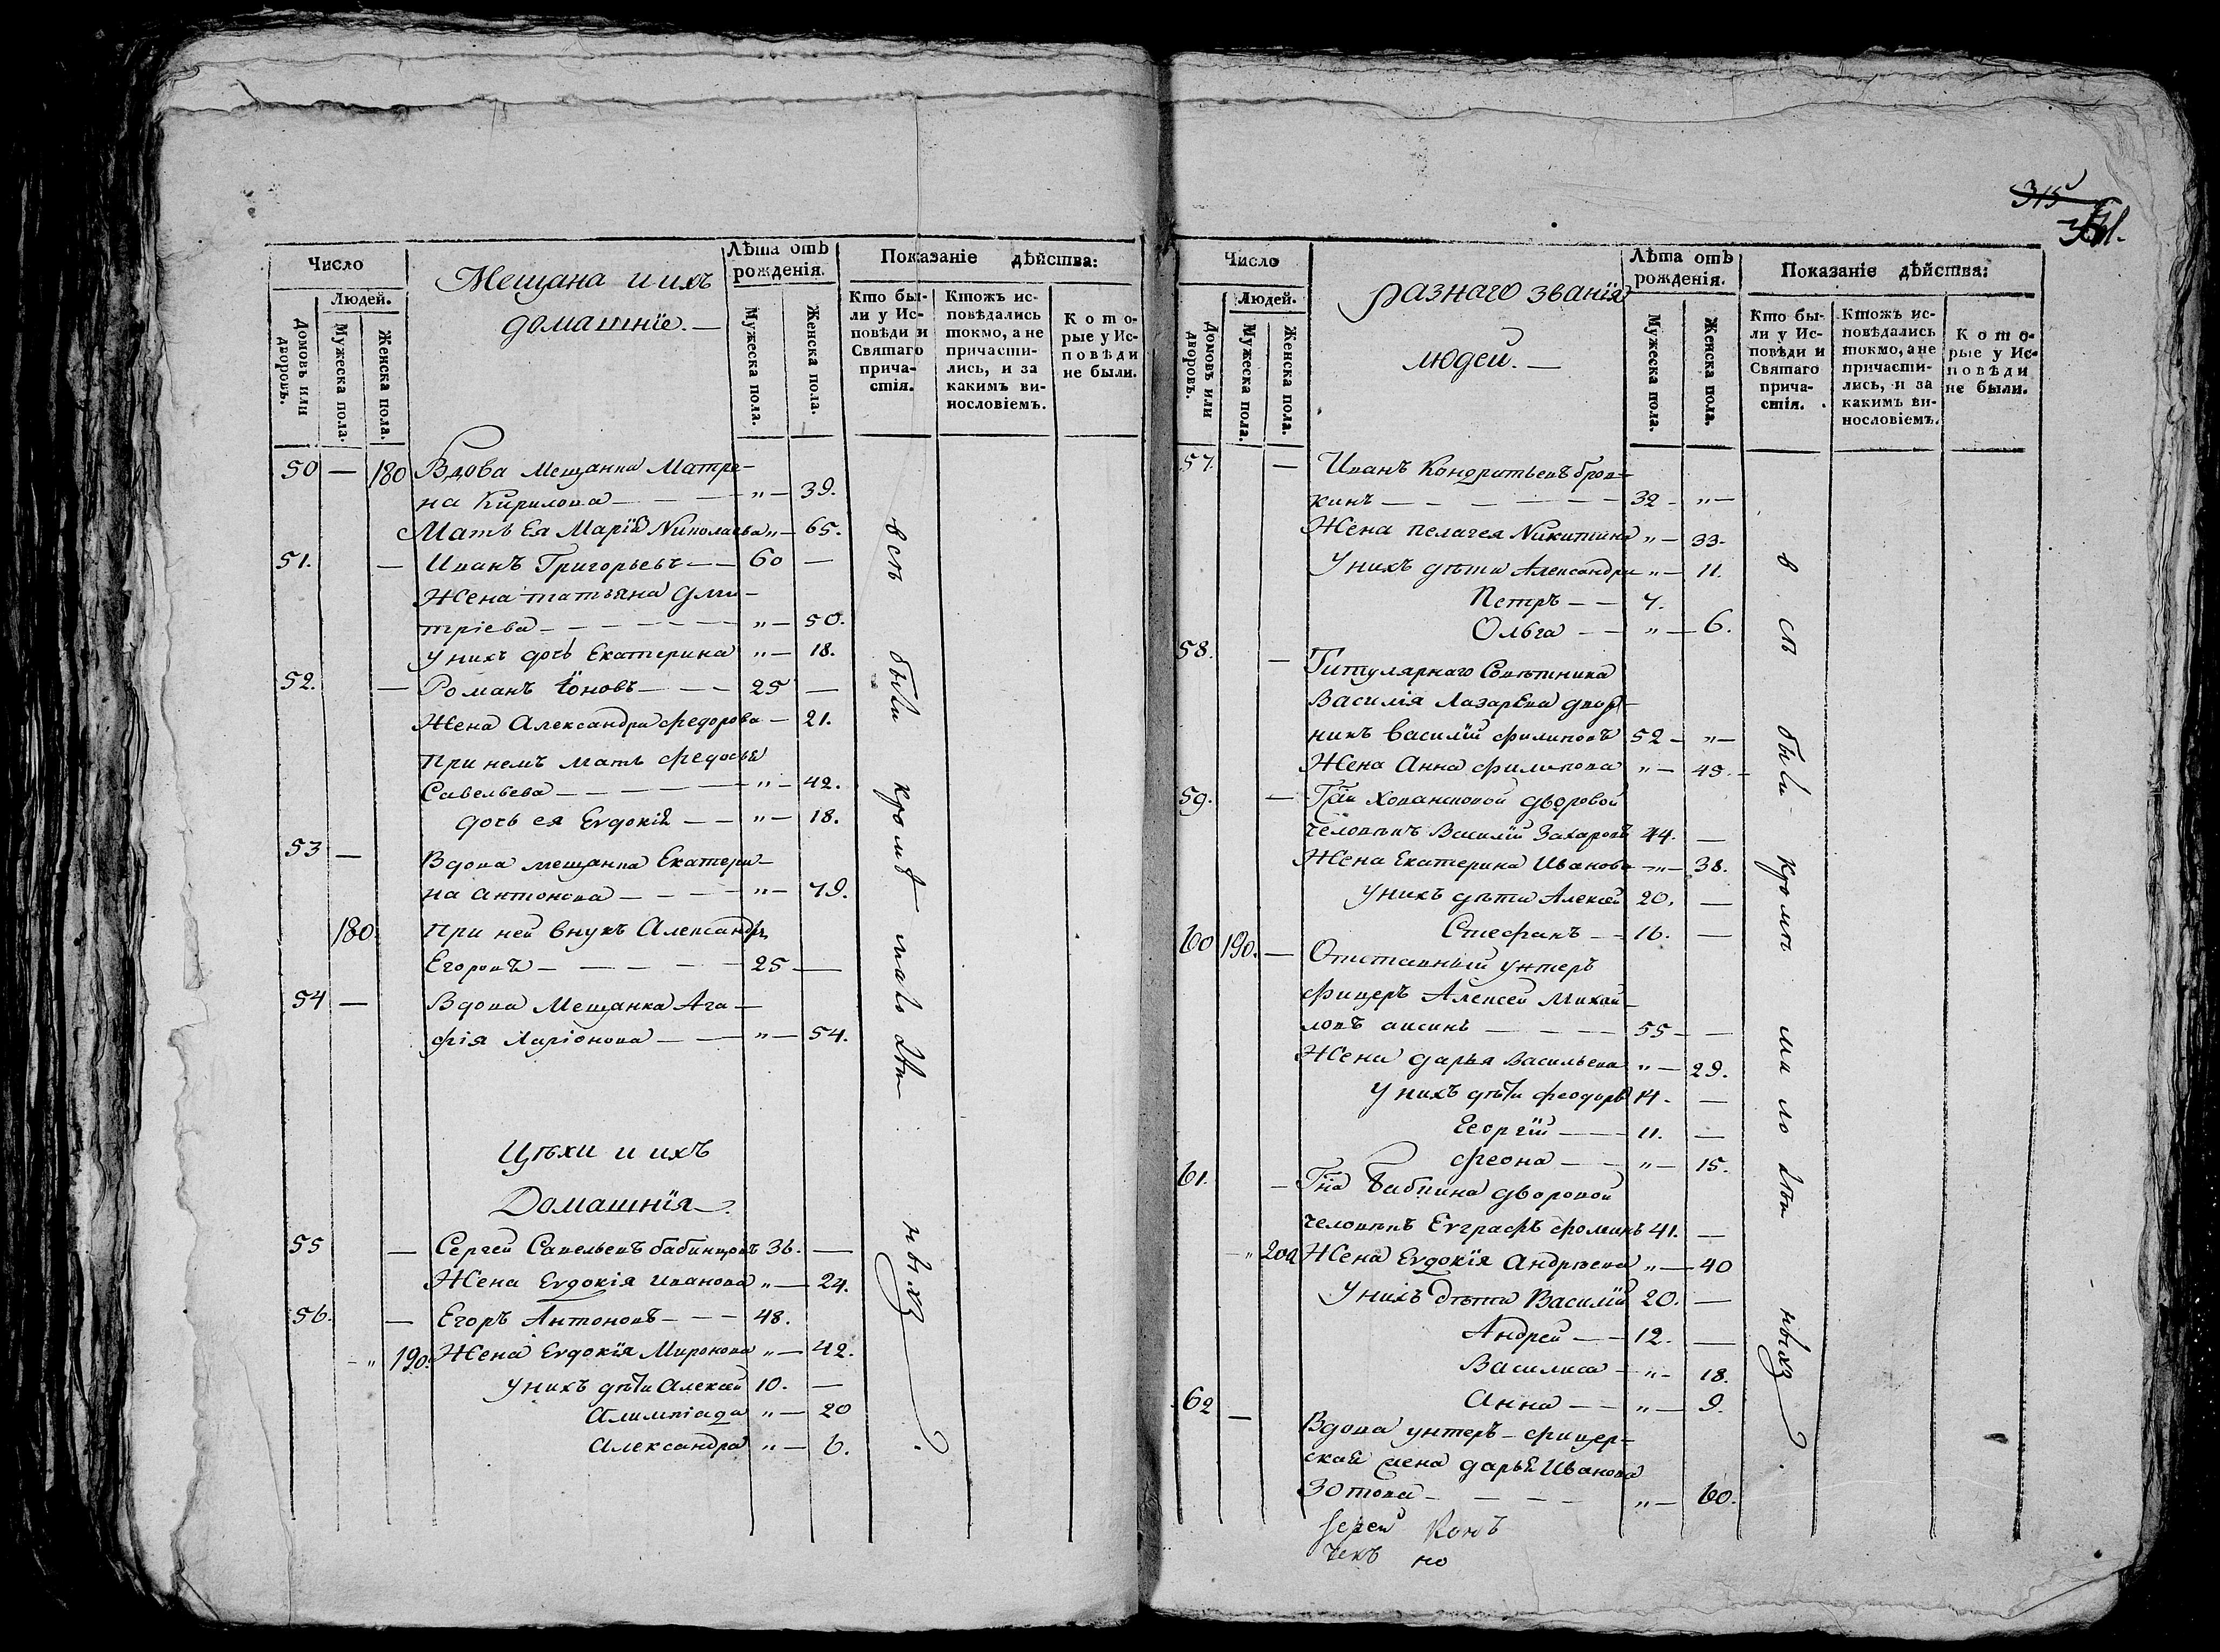 Число
Людей.
Домовъ или дворовъ.
Мужеска пола.
Женска пола.
Мещана и ихъ
домашніе. —
Лѣта отъ рожденія.
Мужеска пола.
Женска пола.
Показаніе дѣйства:
Кто бы-
ли у Ис-
повѣди и
Святаго
прича-
стія.
Ктожъ ис-
повѣдались
токмо, а не
причасти-
лись, и за
какимъ ви-
нословіемъ.
Кото-
рые у Ис-
повѣди
не были.
50 — 180 Вдова Мещанка Матре-
на Кирилова — — — „ — 39.
Мать Ея Марія Николаева „ — 65.
51. — Иванъ Григорьевъ — — 60 —
Жена татьяна Дми-
тріева — — — — — „ — 50.
у нихъ дочь Екатерина „ — 18.
52. — Романъ Іоновъ — — — 25 —
Жена Александра Федорова — 21.
При немъ мать Федосья
Савельева — — — — — „ — 42.
дочь ея Евдокія — — „ — 18.
53 — Вдова мещанка Екатери-
на Антонова — — — — „ — 79.
180. При ней внукъ Александръ
Егоровъ — — — — — 25 —
54 — Вдова Мещанка Ага-
фія Ларіонова — — — „ — 54.
Цѣхи и ихъ
Домашнія.
55 — Сергей Савельевъ бабинцовъ 36. —
Жена Евдокія Иванова „ — 24.
56. — Егоръ Антоновъ — — — 48.
— „ 190. Жена Евдокія Миронова „ — 42.
у нихъ дѣти Алексей 10. —
Алимпіада „ — 20
Александра „ — 6.
всѣ были кромѣ малолѣтныхъ.
315
Число
Людей.
Домовъ или дворовъ.
Мужеска пола.
Женска пола.
разнаго званія
людей. —
Лѣта отъ рожденія.
Мужеска пола.
Женска пола.
Показаніе дѣйства:
Кто бы-
ли у Ис-
повѣди и
Святаго
прича-
стія.
Ктожъ ис-
повѣдались
токмо, а не
причасти-
лись, и за
какимъ ви-
нословіемъ.
Кото-
рые у Ис-
повѣди
не были.
57. — Иванъ Кондратьевъ
32 — „ —
Жена пелагея Никитина „ — 33.
У нихъ дѣти Александра „ — 11.
Петръ — — 7.
Ольга — — „ — 6.
58. — Титулярнаго Совѣтника
Василія Лазарева двор-
никъ Василій Филиповъ 52 — „ —
Жена Анна Филипова „ — 45. —
59. — Хованской дворовой
человѣкъ Василій Захаровъ 44. —
Жена Екатерина Иванова — „ — 38.
у нихъ дѣти Алексей 20. —
Стефанъ — — 16. —
60 190. — Отставный унтеръ
Фицеръ Алексей Михай-
ловъ — — — — 55 — —
Жена Дарья Васильева „ — 29.
У нихъ дѣти Феодоръ 14. —
Георгій — — — 11. —
Феона — — „ — 15.
61. — Гна Бабкина дворовой
человѣкъ Евграфъ Фоминъ 41. —
— „ 200 Жена Евдокія Андреева „ — 40
У нихъ дѣти Василій 20. —
Андрей — — 12. —
Василиса — „ — 18.
Анна — — „ — 9.
62 — Вдова унтеръ-фицер-
ская жена Дарья Иванова
Зотова — — — — — „ — 60.
всѣ были кромѣ малолѣтныхъ.